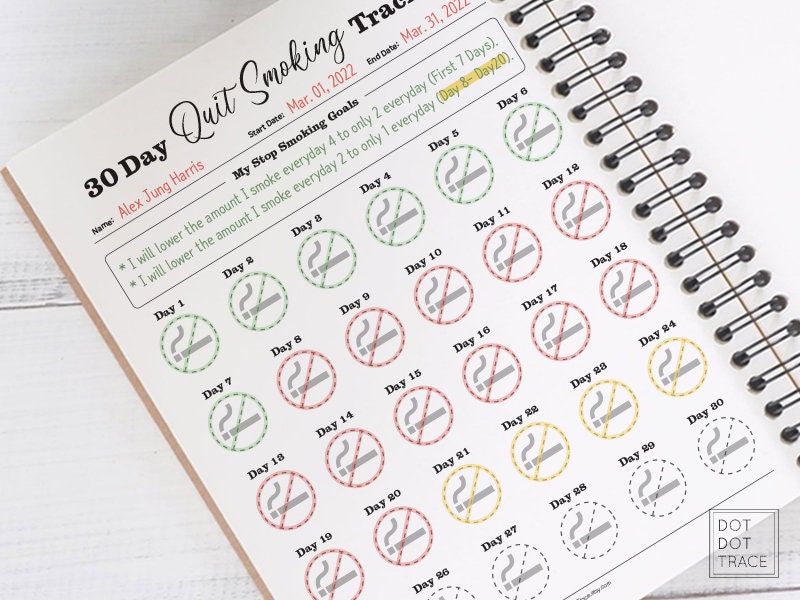 30 Day Quit Smoking
Name: Alex Jung Harris Start Date: Mar. 01, 2022 End Date: Mar. 31, 2022
My Stop Smoking Goals
* I will lower the amount I smoke everyday 4 to only 2 everyday (First 7 Days).
* I will lower the amount I smoke everyday 2 to only 1 everyday (Day 8- Day20).
Day 1 Day 2 Day 3 Day 4 Day 5 Day 6
Day 7 Day 8 Day 9 Day 10 Day 11 Day 12
Day 13 Day 14 Day 15 Day 16 Day 17 Day 18
Day 19 Day 20 Day 21 Day 22 Day 23 Day 24
Day 26 Day 27 Day 28 Day 29 Day 30
DOT
DOT
TRACE